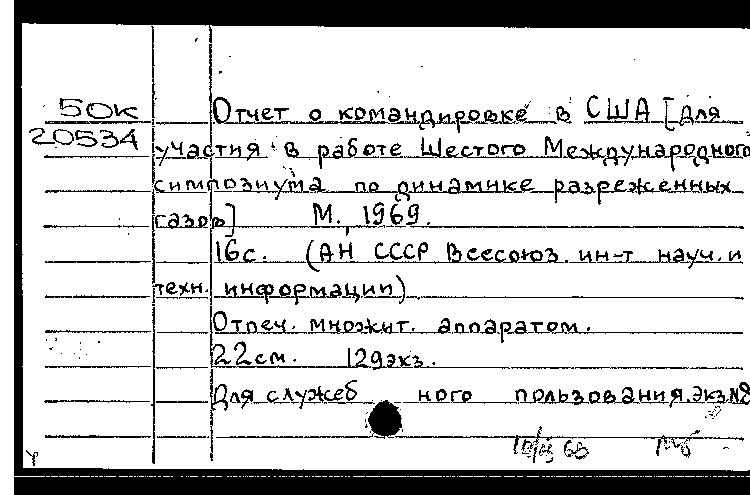 50К
20534
Отчет о командировке в США [для
участия в работе Шестого Международного
симпозиума по динамике разреженных
газов] М., 1969.
16с. (АН СССР Всесоюз. ин-т науч. и
техн. информации)
Отпеч. множит. аппаратом.
22см. 129экз.
Для служеб ного пользования. Экз№